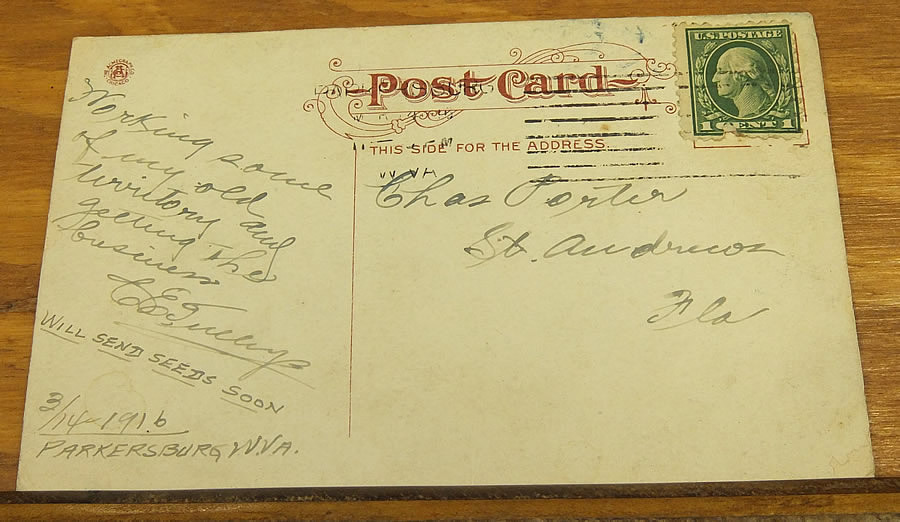 Post Card
THIS SIDE FOR THE ADDRESS.
U.S. POSTAGE
1 CENT 1
W VA
Working some
of my old
territory and
geeting the
business
WILL SEND SEEDS SOON
3/14-1916
PARKERSBURG W.VA.
Chas Porter
St. Andrews
Fla